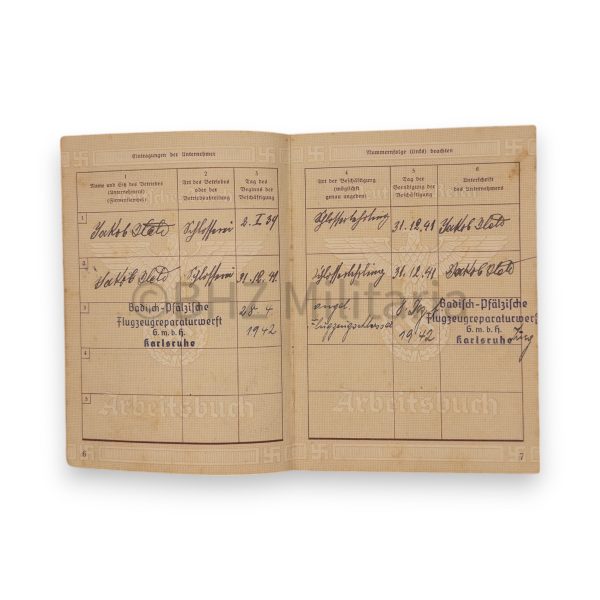 Eintragungen der Unternehmer
1
2
3
Name und Sitz des Betriebes
(Unternehmers)
(Firmenstempel)
Art des Betriebes
oder der
Betriebsabteilung
Tag des
Beginns der
Beschäftigung
1
Jakob
Schlosserei
2. I 39
2
Jakob
Schlosserei
31.12.41.
3
Badisch-Pfälzische
Flugzeugreparaturwerft
G.m.b.H.
Karlsruhe
28.4
1942
4
5
Arbeitsbuch
6
Nummernfolge (links) beachten
4
5
6
Art der Beschäftigung
(möglichst
genau angeben)
Tag der
Beendigung der
Beschäftigung
Unterschrift
des Unternehmers
Schlosserlehrling
31.12.41
Jakob
Schlosserlehrling
31.12.41
Jakob
angel
Flugzeugschlosser
1942
Badisch-Pfälzische
Flugzeugreparaturwerft
G.m.b.H.
Karlsruhe
Arbeitsbuch
7
©BHZ Militaria